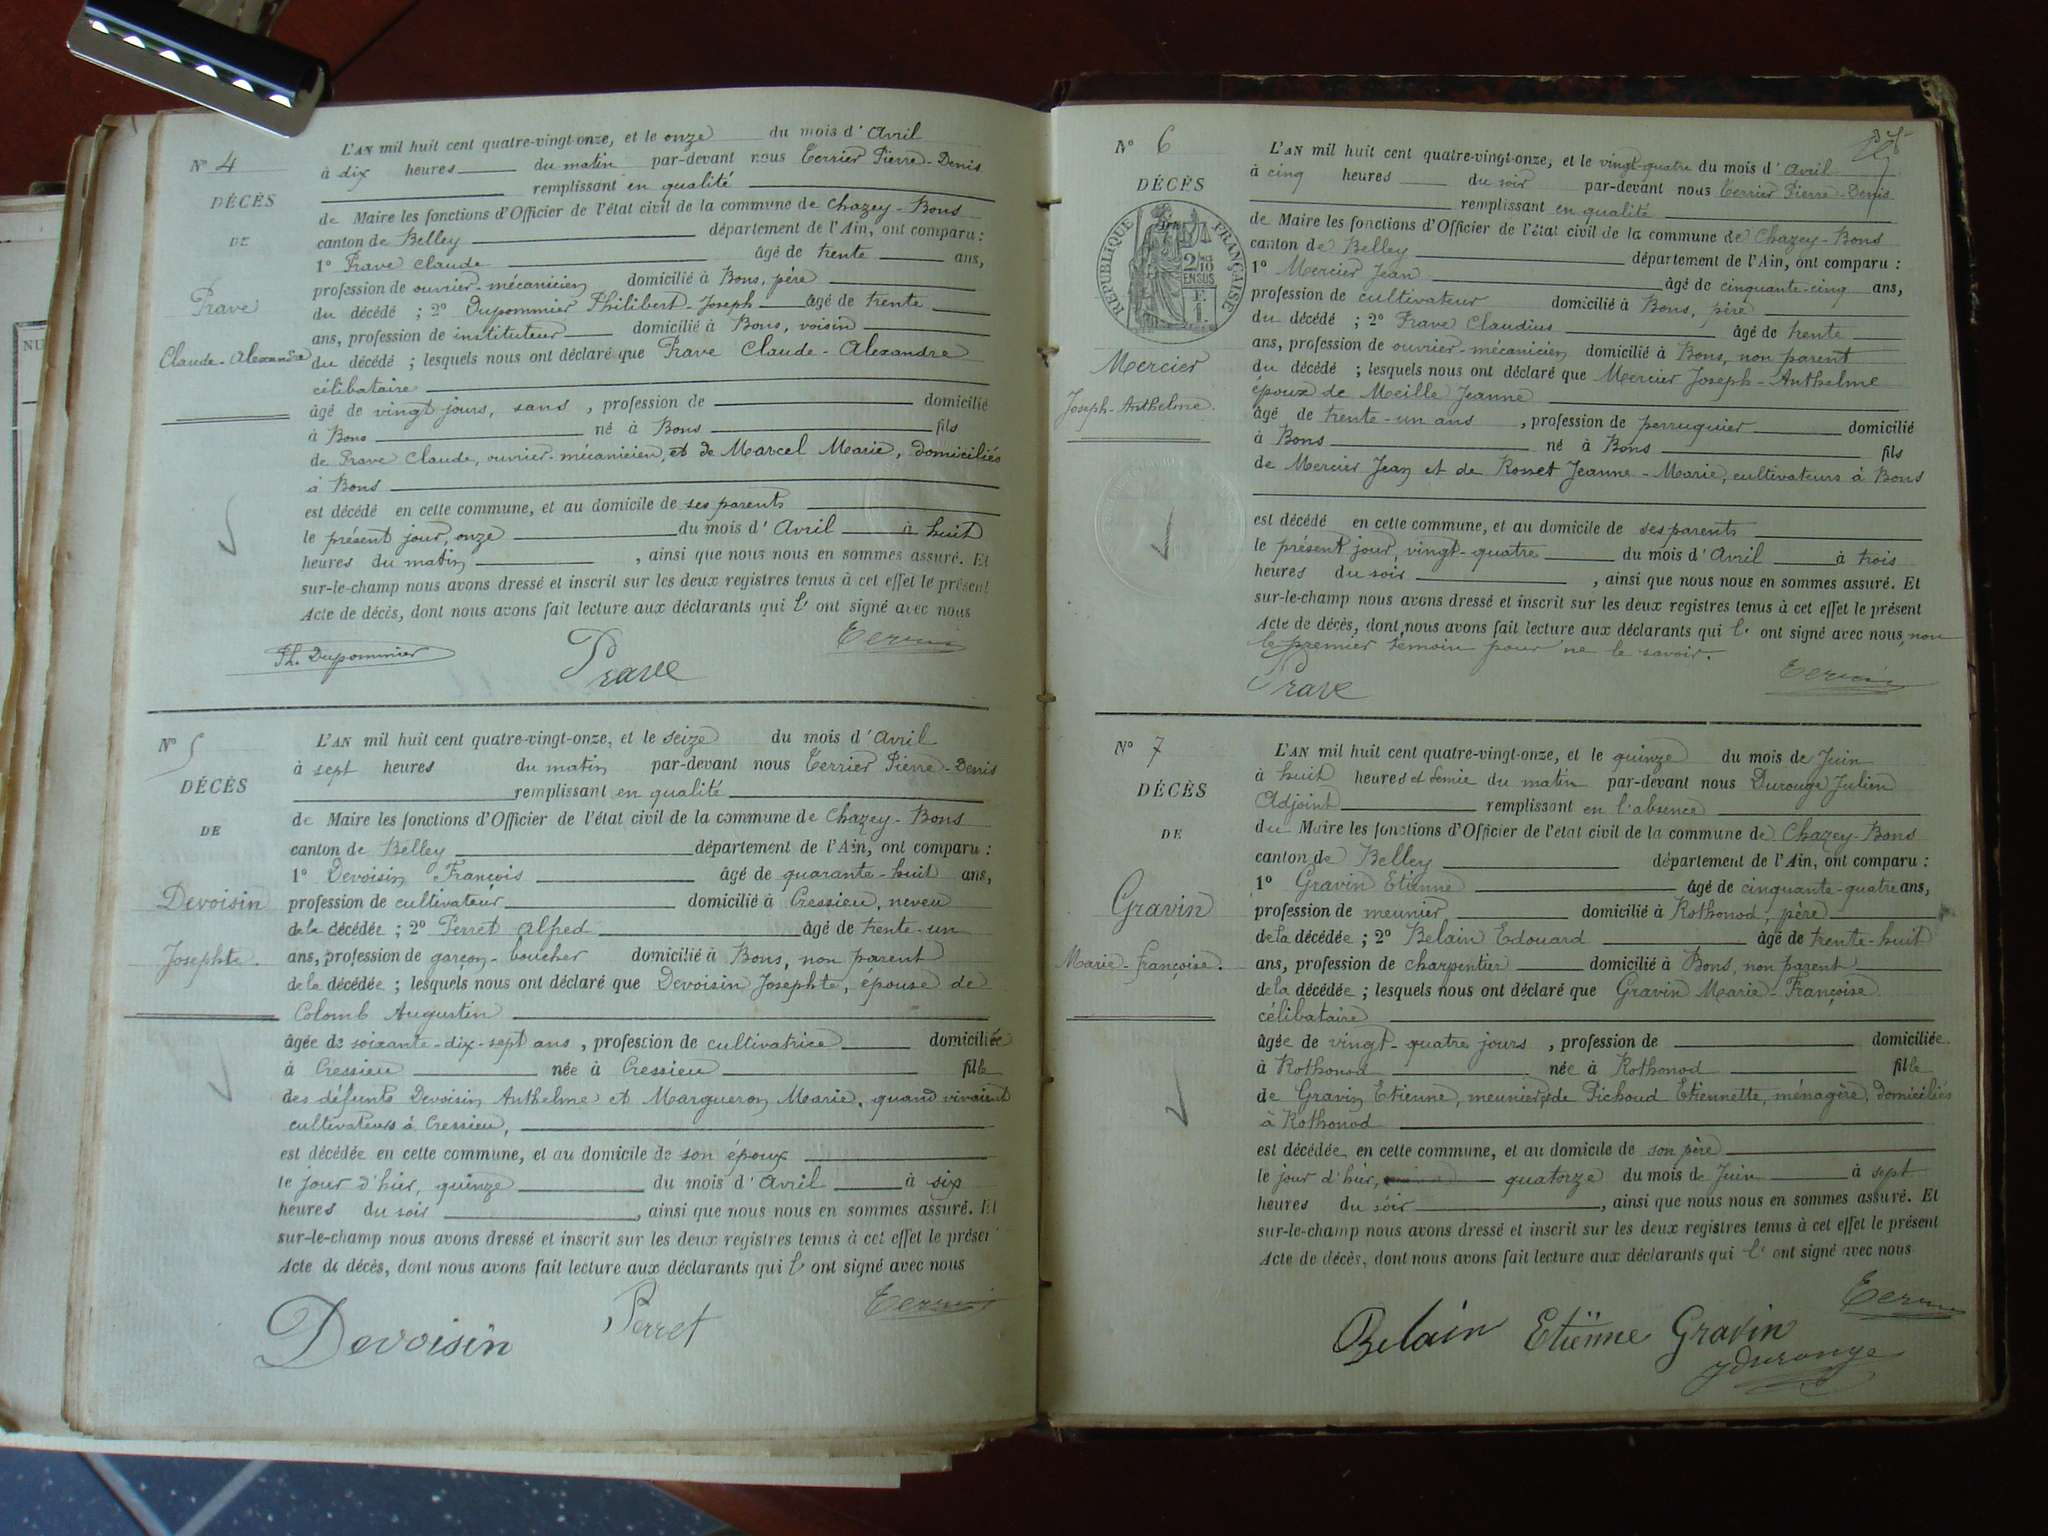 N° 4
DÉCÈS
DE
Prave
Claude-Alexandre
L'AN mil huit cent quatre-vingt-onze, et le onze du mois d'Avril
à dix heures du matin par-devant nous Terrier Pierre-Denis
remplissant en qualité
de Maire les fonctions d'Officier de l'état civil de la commune de Chazey-Bons
canton de Belley département de l'Ain, ont comparu :
1° Prave Claude âgé de trente ans,
profession de ouvrier-mécanicien domicilié à Bons, père
du décédé ; 2° Dupommier Philibert-Joseph âgé de trente
ans, profession de instituteur domicilié à Bons, voisin
du décédé ; lesquels nous ont déclaré que Prave Claude-Alexandre
célibataire
âgé de vingt jours, sans, profession de domicilié
à Bons né à Bons fils
de Prave Claude, ouvrier-mécanicien, et de Marcel Marie, domiciliés
à Bons
est décédé en cette commune, et au domicile de ses parents
le présent jour, onze du mois d'Avril à huit
heures du matin , ainsi que nous nous en sommes assuré. Et
sur-le-champ nous avons dressé et inscrit sur les deux registres tenus à cet effet le présent
Acte de décès, dont nous avons fait lecture aux déclarants qui l' ont signé avec nous
Ph. Dupommier Prave Terrier
N° 5
DÉCÈS
DE
Devoisin
Josephte.
L'AN mil huit cent quatre-vingt-onze, et le seize du mois d'Avril
à sept heures du matin par-devant nous Terrier Pierre-Denis
remplissant en qualité
de Maire les fonctions d'Officier de l'état civil de la commune de Chazey-Bons
canton de Belley département de l'Ain, ont comparu :
1° Devoisin François âgé de quarante-huit ans,
profession de cultivateur domicilié à Cressieu, neveu
de la décédée ; 2° Perret Alfred âgé de trente-un
ans, profession de garçon-boucher domicilié à Bons, non parent
de la décédée ; lesquels nous ont déclaré que Devoisin Josephte, épouse de
Colomb Augustin
âgée de soixante-dix-sept ans, profession de cultivatrice domiciliée
à Cressieu née à Cressieu fille
des défunts Devoisin Anthelme et Margueron Marie, quand vivaient
cultivateurs à Cressieu,
est décédée en cette commune, et au domicile de son époux
le jour d'hier, quinze du mois d'Avril à six
heures du soir , ainsi que nous nous en sommes assuré. Et
sur-le-champ nous avons dressé et inscrit sur les deux registres tenus à cet effet le présent
Acte de décès, dont nous avons fait lecture aux déclarants qui l' ont signé avec nous
Devoisin Perret Terrier
N° 6
DÉCÈS
RÉPUBLIQUE FRANÇAISE
2/10
EN SUS
F.
1.
Mercier
Joseph-Anthelme.
L'AN mil huit cent quatre-vingt-onze, et le vingt-quatre du mois d'Avril
à cinq heures du soir par-devant nous Terrier Pierre-Denis
remplissant en qualité
de Maire les fonctions d'Officier de l'état civil de la commune de Chazey-Bons
canton de Belley département de l'Ain, ont comparu :
1° Mercier Jean âgé de cinquante-cinq ans,
profession de cultivateur domicilié à Bons, père
du décédé ; 2° Prave Claudius âgé de trente
ans, profession de ouvrier-mécanicien domicilié à Bons, non parent
du décédé ; lesquels nous ont déclaré que Mercier Joseph-Anthelme
époux de Meille Jeanne
âgé de trente-un ans , profession de perruquier domicilié
à Bons né à Bons fils
de Mercier Jean et de Rosset Jeanne-Marie, cultivateurs à Bons
est décédé en cette commune, et au domicile de ses parents
le présent jour, vingt-quatre du mois d'Avril à trois
heures du soir , ainsi que nous nous en sommes assuré. Et
sur-le-champ nous avons dressé et inscrit sur les deux registres tenus à cet effet le présent
Acte de décès, dont nous avons fait lecture aux déclarants qui l' ont signé avec nous, non
le premier témoin pour ne le savoir.
Prave Terrier
N° 7
DÉCÈS
DE
Gravin
Marie-Françoise.
L'AN mil huit cent quatre-vingt-onze, et le quinze du mois de Juin
à huit heures et demie du matin par-devant nous Durouge Julien
Adjoint remplissant en l'absence
du Maire les fonctions d'Officier de l'état civil de la commune de Chazey-Bons
canton de Belley département de l'Ain, ont comparu :
1° Gravin Etienne âgé de cinquante-quatre ans,
profession de meunier domicilié à Rothonod, père
de la décédée ; 2° Belain Edouard âgé de trente-huit
ans, profession de charpentier domicilié à Bons, non parent
de la décédée ; lesquels nous ont déclaré que Gravin Marie-Françoise
célibataire
âgée de vingt-quatre jours , profession de domiciliée
à Rothonod née à Rothonod fille
de Gravin Etienne, meunier, et de Pichoud Etiennette, ménagère, domiciliés
à Rothonod
est décédée en cette commune, et au domicile de son père
le jour d'hier, quatorze du mois de Juin à sept
heures du soir , ainsi que nous nous en sommes assuré. Et
sur-le-champ nous avons dressé et inscrit sur les deux registres tenus à cet effet le présent
Acte de décès, dont nous avons fait lecture aux déclarants qui l' ont signé avec nous
Belain Etiënne Gravin Terrier
JDurouge